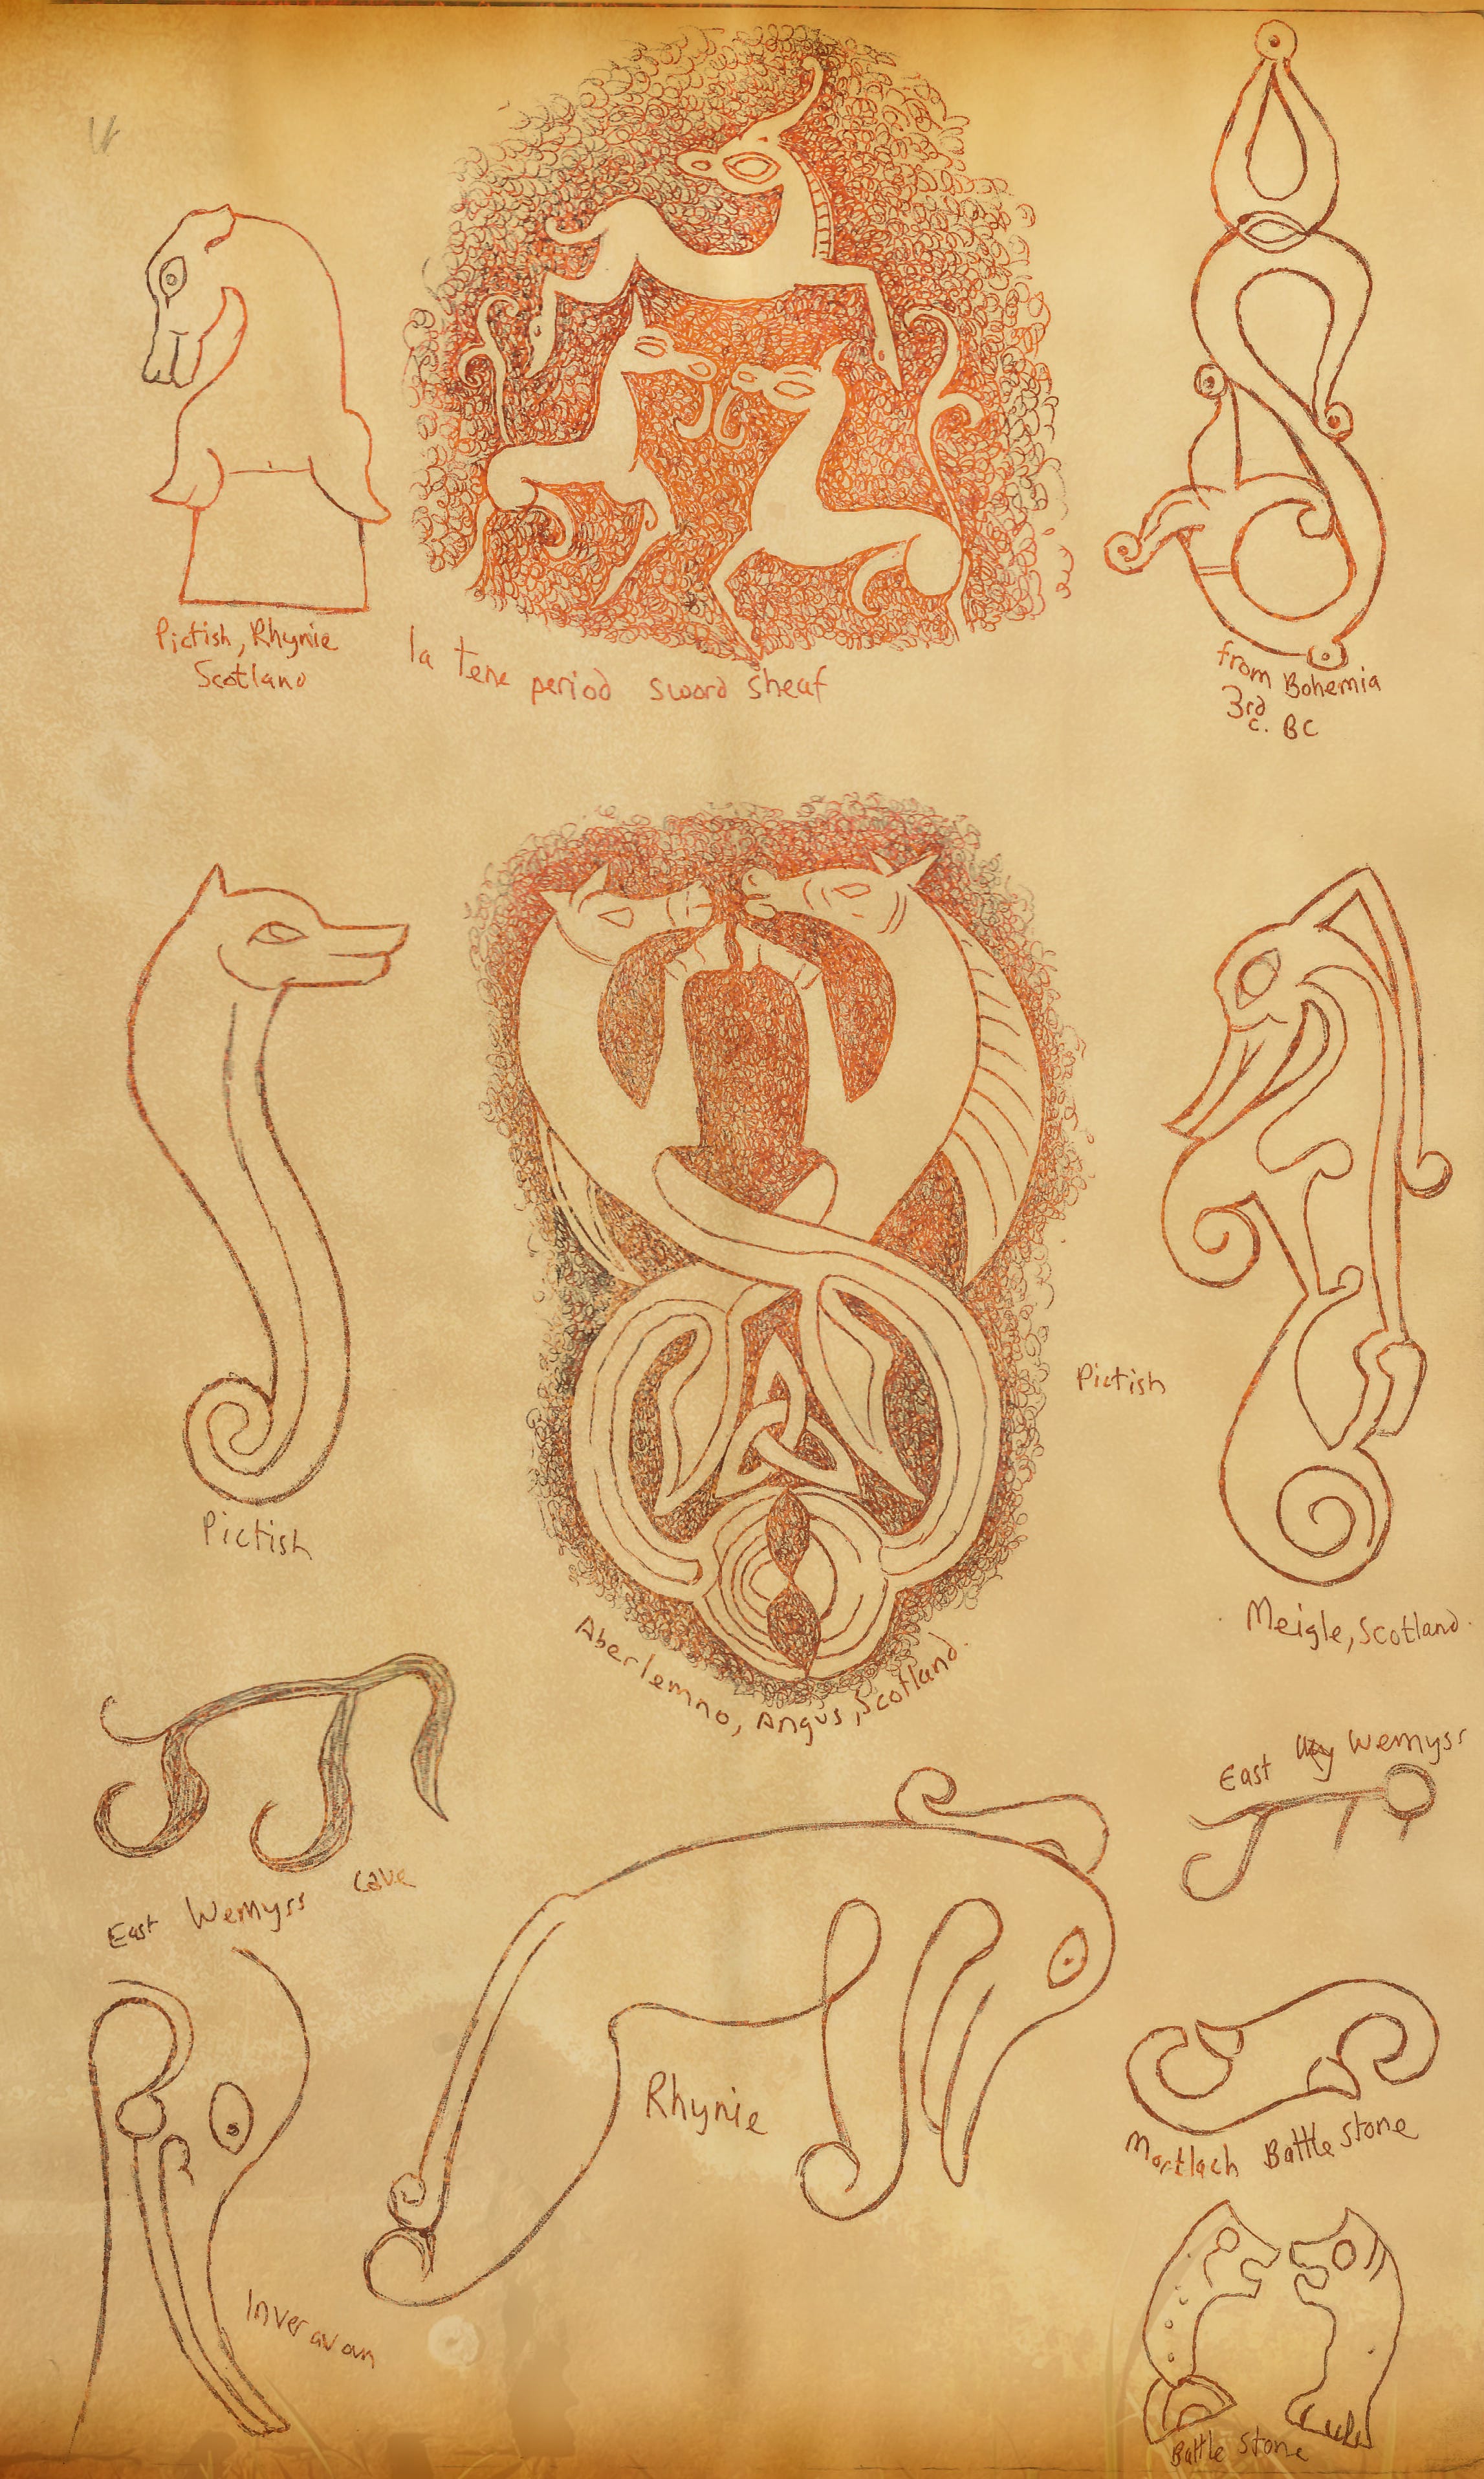 Pictish, Rhynie
Scotland
la tene period sword sheaf
from Bohemia
3rd
c. BC
Pictish
Aberlemno, Angus, Scotland.
Pictish
Meigle, Scotland.
East Wemyss cave
East Wemyss
Rhynie
Inveravon
Mortlach Battle stone
Battle stone